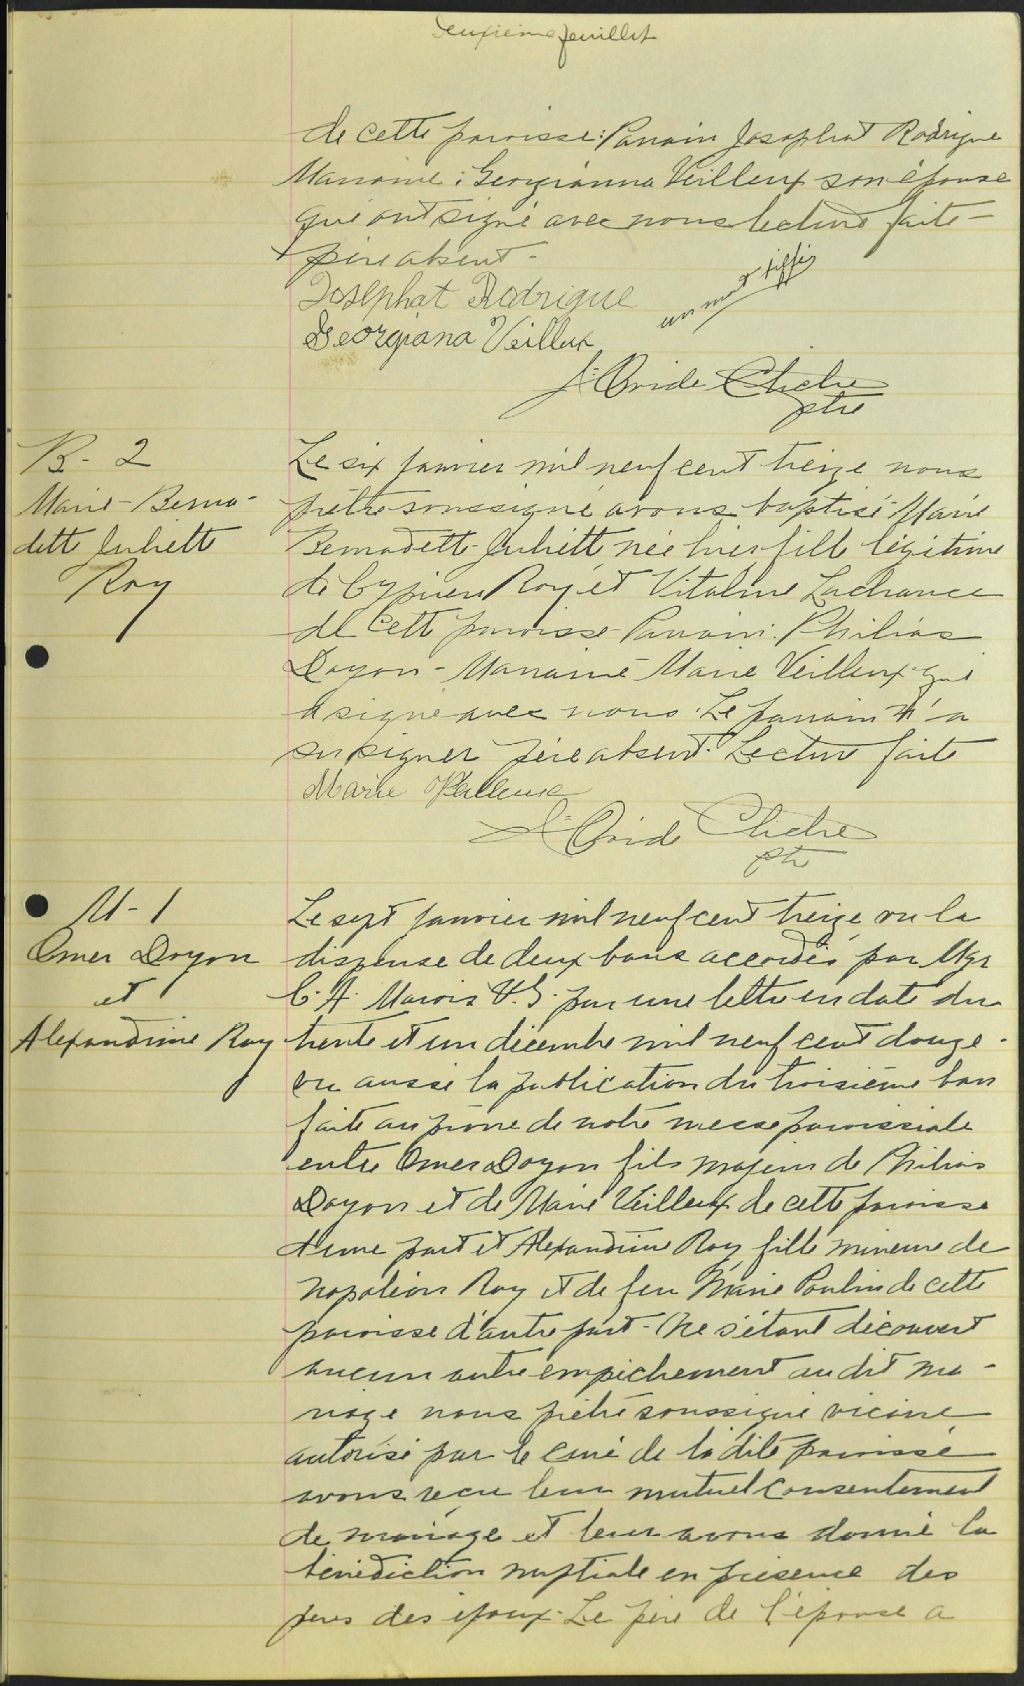 Deuxième feuillet
de cette paroisse: Parrain Josaphat Rodrigue
Marraine: Georgianna Veilleux son épouse
qui ont signé avec nous lecture faite -
père absent -
Josephat Rodrigue
un mot biffé
Georgiana Veilleux
J. Ovide Cliche
ptre
B - 2
Marie - Berna-
dette Juliette
Roy
Le six janvier mil neuf cent treize nous
prêtre soussigné avons baptisé Marie
Bernadette Juliette née hier fille légitime
de Cyprien Roy et Vitaline Lachance
de cette paroisse - Parrain: Philias
Doyon - Marraine Marie Veilleux qui
a signé avec nous. Le parrain n'a
su signer père absent. Lecture faite
Marie Veilleux
J. Ovide Cliche
ptre
M - 1
Omer Doyon
et
Alexandrine Roy
Le sept janvier mil neuf cent treize vu la
dispense de deux bans accordés par Mgr
C. A. Marois V.G. par une lettre en date du
trente et un décembre mil neuf cent douze -
vu aussi la publication du troisième ban
faite au prône de notre messe paroissiale
entre Omer Doyon fils majeur de Philias
Doyon et de Marie Veilleux de cette paroisse
d'une part et Alexandrine Roy fille mineure de
Napoléon Roy et de feu Marie Poulin de cette
paroisse d'autre part - Ne s'étant découvert
aucun autre empêchement au dit ma-
riage nous prêtre soussigné vicaire
autorisé par le curé de la dite paroisse
avons reçu leur mutuel consentement
de mariage et leur avons donné la
bénédiction nuptiale en présence des
pères des époux. Le père de l'épouse a